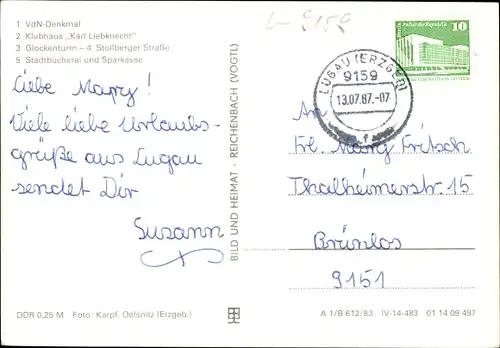 L-9159
1 VdN-Denkmal
2 Klubhaus „Karl Liebknecht"
3 Glockenturm – 4. Stollberger Straße
5 Stadtbücherei und Sparkasse
Liebe Mary!
Viele liebe Urlaubs-
grüße aus Lugau
sendet Dir
Susann
DDR 0,25 M Foto: Karpf, Oelsnitz (Erzgeb.)
BILD UND HEIMAT · REICHENBACH (VOGTL)
10
LUGAU (ERZGEB)
9159
13.07.87.-07
f
An
Frl. Mary Fritsch
Thalheimerstr. 15
Brünlos
9151
A 1/B 612/83 IV-14-483 01 14 09 497